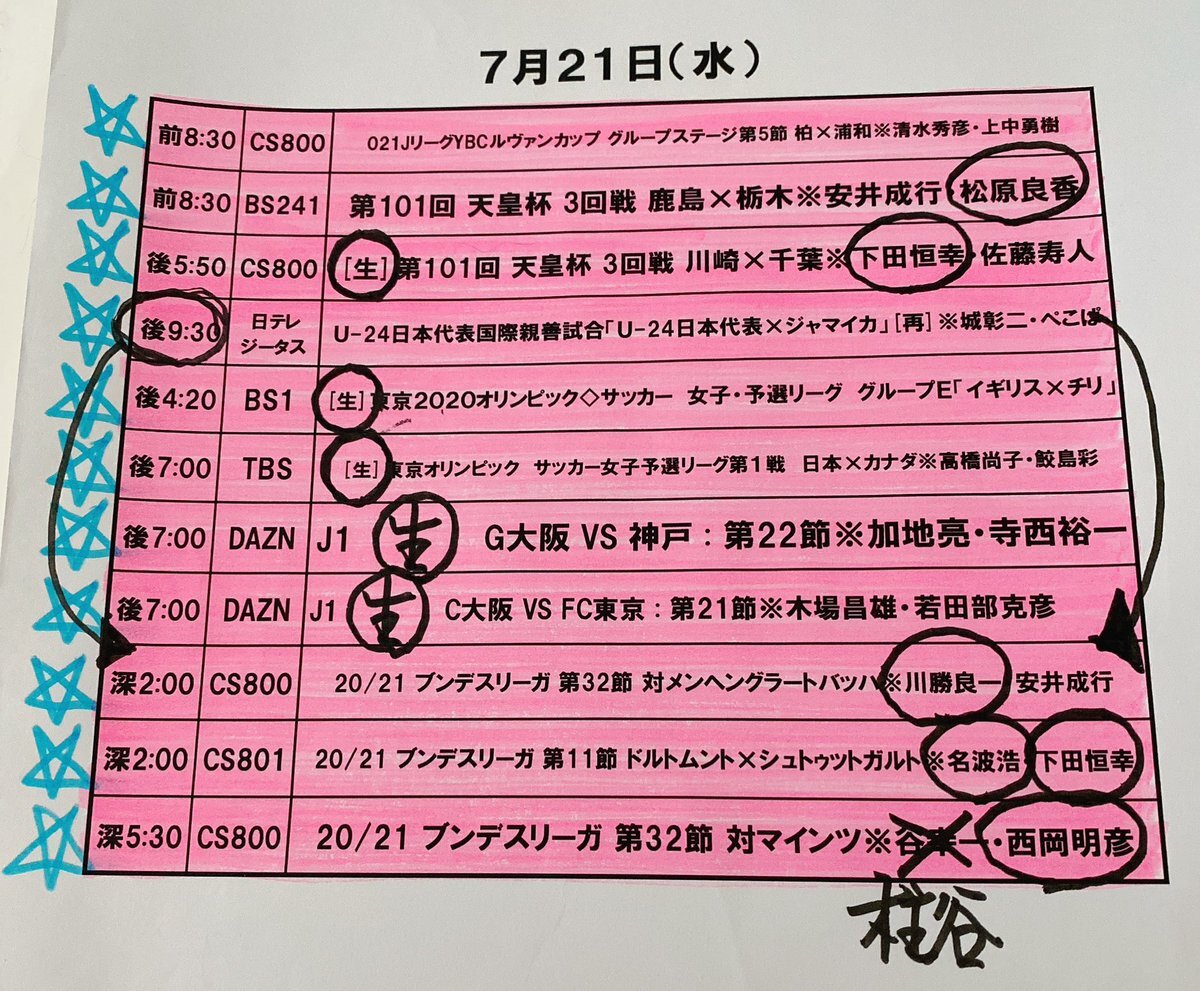 7月21日(水)
前8:30 CS800 021JリーグYBCルヴァンカップ グループステージ第5節 柏×浦和※清水秀彦・上中勇樹
前8:30 BS241 第101回 天皇杯 3回戦 鹿島×栃木※安井成行・松原良香
後5:50 CS800 [生]第101回 天皇杯 3回戦 川崎×千葉※下田恒幸・佐藤寿人
後9:30 日テレジータス U-24日本代表国際親善試合「U-24日本代表×ジャマイカ」[再]※城彰二・ぺこぱ
後4:20 BS1 [生]東京2020オリンピック◇サッカー 女子・予選リーグ グループE「イギリス×チリ」
後7:00 TBS [生]東京オリンピック サッカー女子予選リーグ第1戦 日本×カナダ※高橋尚子・鮫島彩
後7:00 DAZN J1 生 G大阪 VS 神戸:第22節※加地亮・寺西裕一
後7:00 DAZN J1 生 C大阪 VS FC東京:第21節※木場昌雄・若田部克彦
深2:00 CS800 20/21 ブンデスリーガ 第32節 対メンヘングラートバッハ※川勝良一 安井成行
深2:00 CS801 20/21 ブンデスリーガ 第11節 ドルトムント×シュトゥットガルト※名波浩・下田恒幸
深5:30 CS800 20/21 ブンデスリーガ 第32節 対マインツ※谷幸一・西岡明彦
柱谷